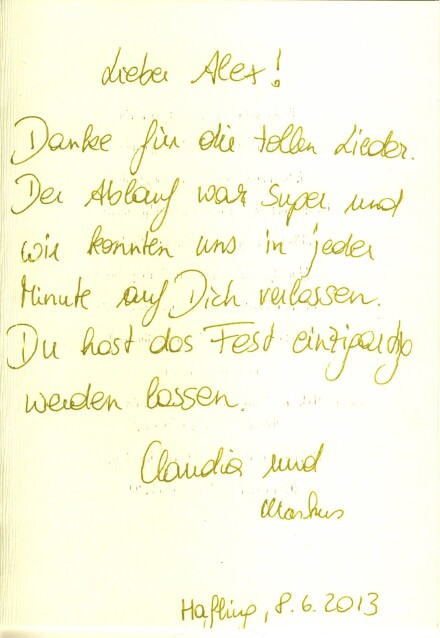 Lieber Alex!
Danke für die tollen Lieder.
Der Ablauf war super und
wir konnten uns in jeder
Minute auf Dich verlassen.
Du hast das Fest einzigartig
werden lassen.
Claudia und
Markus
Hafling, 8.6.2013